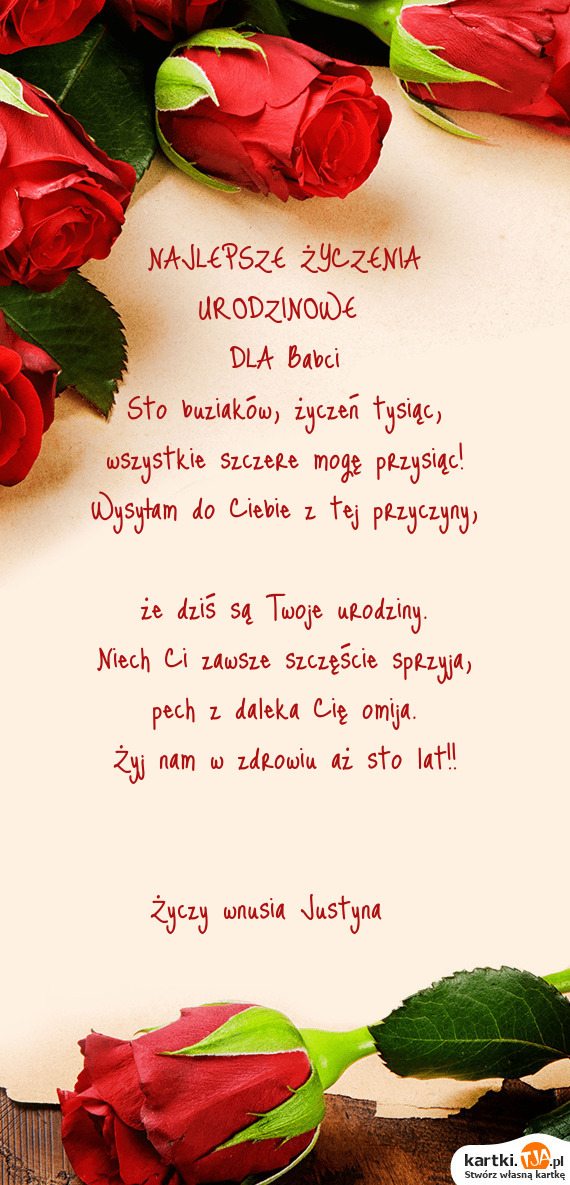 NAJLEPSZE ŻYCZENIA
URODZINOWE
DLA Babci
Sto buziaków, życzeń tysiąc,
wszystkie szczere mogę przysiąc!
Wysyłam do Ciebie z tej przyczyny,
że dziś są Twoje urodziny.
Niech Ci zawsze szczęście sprzyja,
pech z daleka Cię omija.
Żyj nam w zdrowiu aż sto lat!!
Życzy wnusia Justyna
kartki.TJA.pl
Stwórz własną kartkę